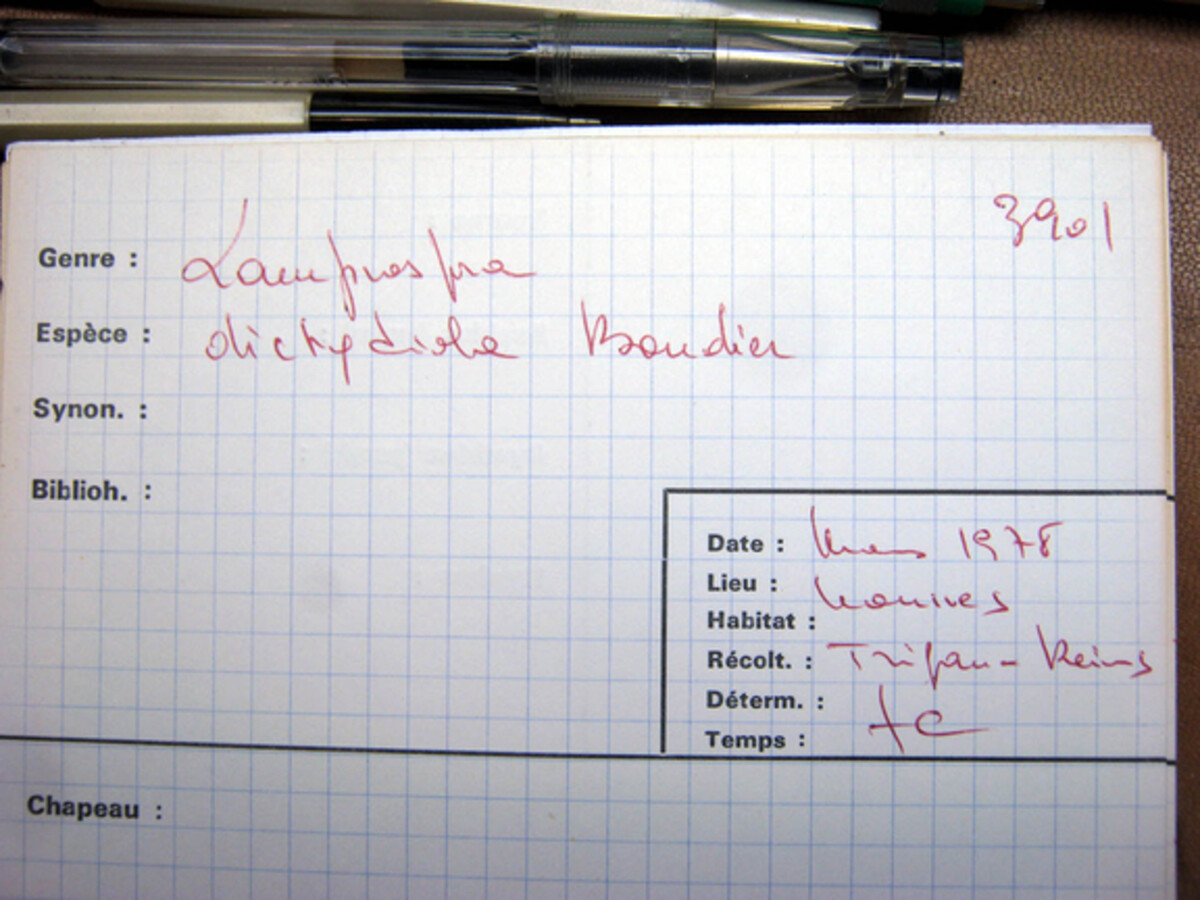 3901
Genre : Lamprospora
Espèce : dictydiola Boudier
Synon. :
Biblioh. :
Date : Mars 1978
Lieu :
Habitat :
Récolt. : Reims
Déterm. :
Temps :
Chapeau :